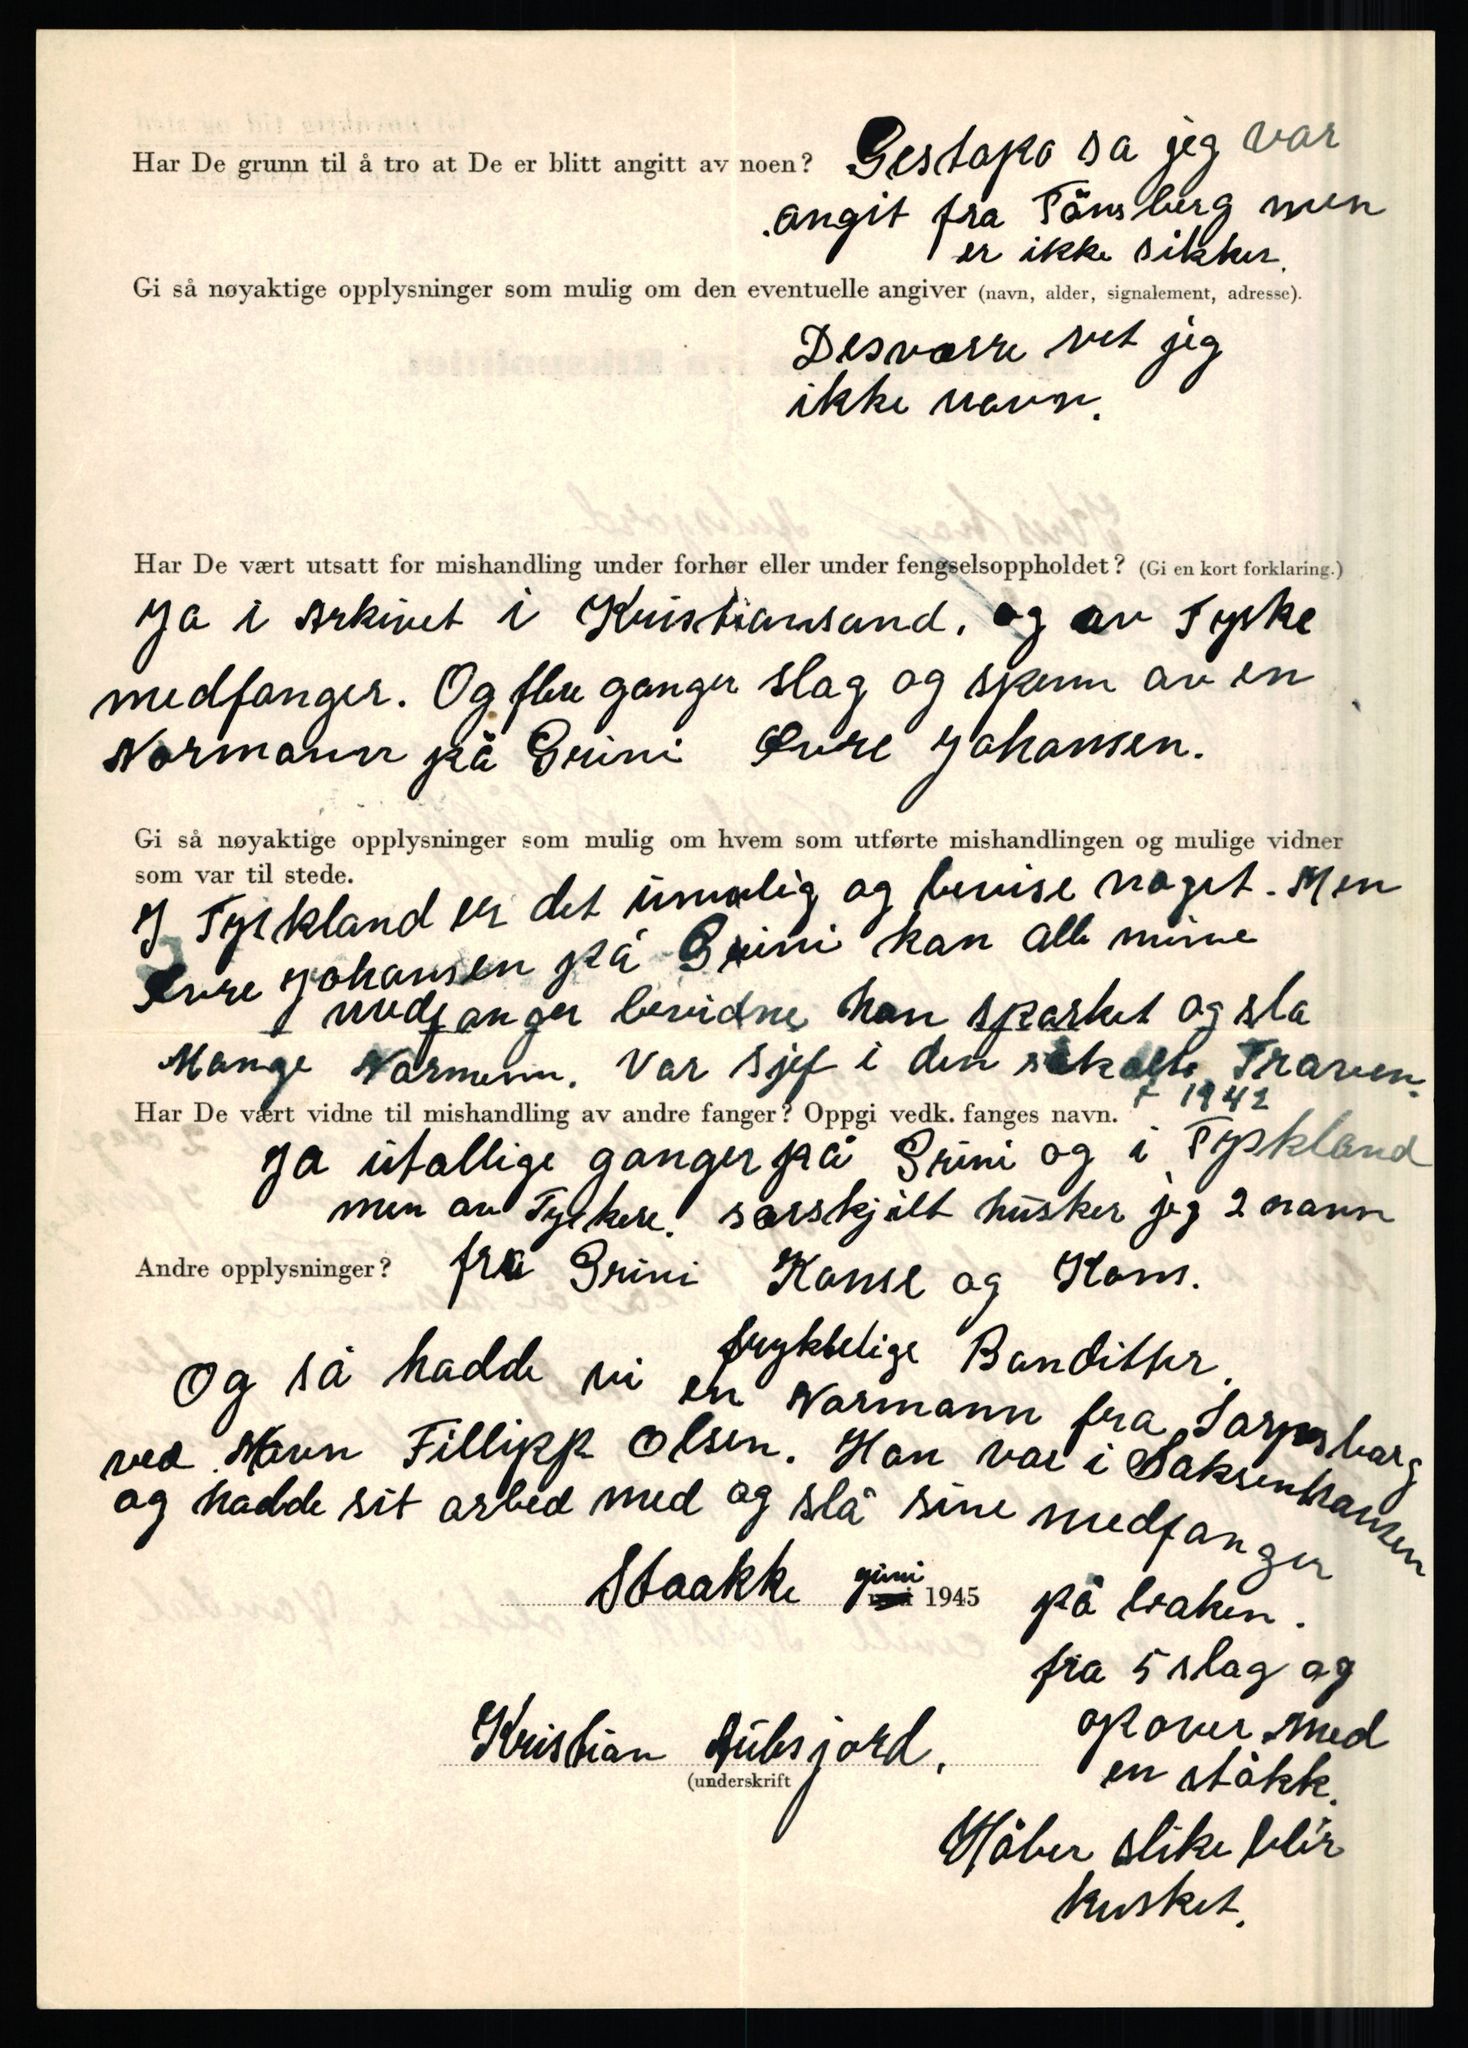 Har De grunn til å tro at De er blitt angitt av noen? Gestapo sa jeg var
angit fra Tönsberg men
er ikke sikker.
Gi så nøyaktige opplysninger som mulig om den eventuelle angiver (navn, alder, signalement, adresse).
Desværre vet jeg
ikke navn.
Har De vært utsatt for mishandling under forhør eller under fengselsoppholdet? (Gi en kort forklaring.)
Ja i Arkivet i Kristiansand. og av Tyske
medfanger. Og flere ganger slag og spenn av en
Normann på Grini Øvre Johansen.
Gi så nøyaktige opplysninger som mulig om hvem som utførte mishandlingen og mulige vidner
som var til stede.
I Tyskland er det umulig og bevise noget. Men
Øvre Johansen på Grini kan alle mine
medfanger bevidne han sparket og slo
Mange Normenn. Var sjef i den såkalte Traven.
1942
Har De vært vidne til mishandling av andre fanger? Oppgi vedk. fanges navn.
Ja utallige ganger på Grini og i Tyskland
men av Tyskere. særskjilt husker jeg 2 navn
Andre opplysninger? fra Grini Kunse og Kons.
fryktelige Banditter.
Og så hadde vi en Normann fra Sarpsborg
ved Navn Fillipp Olsen. Han var i Saksenhausen
og hadde sit arbed med og slå sine medfanger
på baken.
fra 5 slag og
opover med
en ståkk.
Staakke juni mai 1945
Kristian Aubsjord.
(underskrift
Håber slike blir
husket.